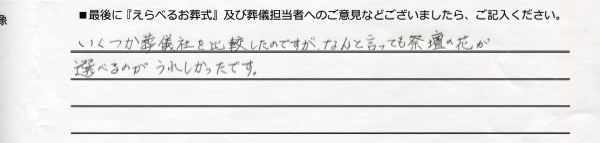 像
■最後に『えらべるお葬式』及び葬儀担当者へのご意見などございましたら、ご記入ください。
いくつか葬儀社を比較したのですが、なんと言っても祭壇の花が
選べるのが うれしかったです。